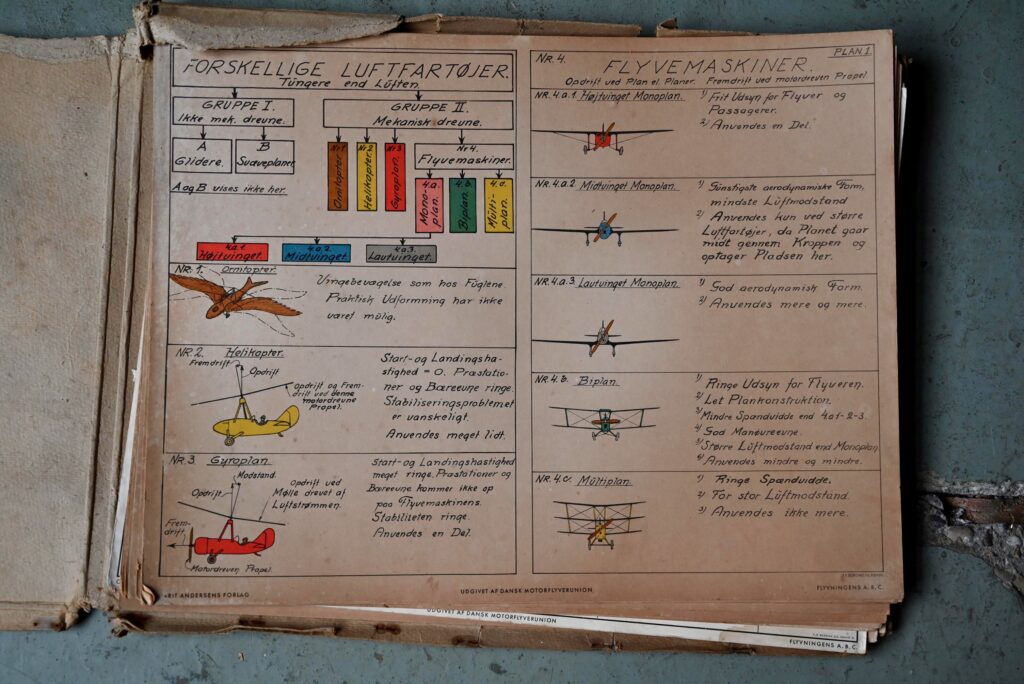 FORSKELLIGE LUFTFARTØJER.
Tüngere end Lüften.
GRUPPE I.
Ikke mek. drevne.
GRUPPE II.
Mekanisk drevne.
A
Glidere.
B
Svæveplaner.
A og B vises ikke her.
Nr 1
Ornitopter.
Nr 2
Helikopter.
Nr 3
Gyroplan.
Nr 4.
Flyvemaskiner.
4.a.
Mono-
plan.
4.b.
Biplan.
4.c.
Mülti-
plan.
4.a.1.
Højtvinget.
4.a.2.
Midtvinget.
4.a.3.
Lavtvinget.
NR. 1. Ornitopter.
Vingebevægelse som hos Füglene.
Praktisk Udformning har ikke
været mülig.
NR. 2. Helikopter.
Fremdrift
Opdrift
Opdrift og Frem-
drift ved denne
motordrevne
Propel.
Start- og Landingsha-
stighed = 0. Præstatio-
ner og Bæreevne ringe.
Stabiliseringsproblemet
er vanskeligt.
Anvendes meget lidt.
NR. 3. Gyroplan.
Modstand.
Opdrift.
Opdrift ved
Mølle drevet af
Lüftstrømmen.
Frem-
drift.
Motordreven Propel.
Start- og Landingshastighed
meget ringe. Præstationer og
Bæreevne kommer ikke op
paa Flyvemaskinens.
Stabiliteten ringe.
Anvendes en Del.
PLAN. 1.
NR. 4. FLYVEMASKINER.
Opdrift ved Plan el. Planer. Fremdrift ved motordreven Propel.
NR. 4.a.1. Højtvinget Monoplan.
1) Frit Udsyn for Flyver og
Passagerer.
2) Anvendes en Del.
NR. 4.a.2. Midtvinget Monoplan.
1) Günstigste aerodynamiske Form,
mindste Lüftmodstand
2) Anvendes kun ved større
Lüftfartøjer, da Planet gaar
midt gennem Kroppen og
optager Pladsen her.
NR. 4.a.3. Lavtvinget Monoplan.
1) God aerodynamisk Form.
2) Anvendes mere og mere.
NR. 4.b. Biplan.
1) Ringe Udsyn for Flyveren.
2) Let Plankonstruktion.
3) Mindre Spændvidde end 4.a1-2-3.
4) God Manøvreevne.
5) Større Lüftmodstand end Monoplan
6) Anvendes mindre og mindre.
NR. 4.c. Mültiplan.
1) Ringe Spændvidde.
2) For stor Lüftmodstand.
3) Anvendes ikke mere.
RIT ANDERSENS FORLAG
UDGIVET AF DANSK MOTORFLYVERUNION
FLYVNINGENS A.B.C.
UDGIVET AF DANSK MOTORFLYVERUNION
FLYVNINGENS A.B.C.